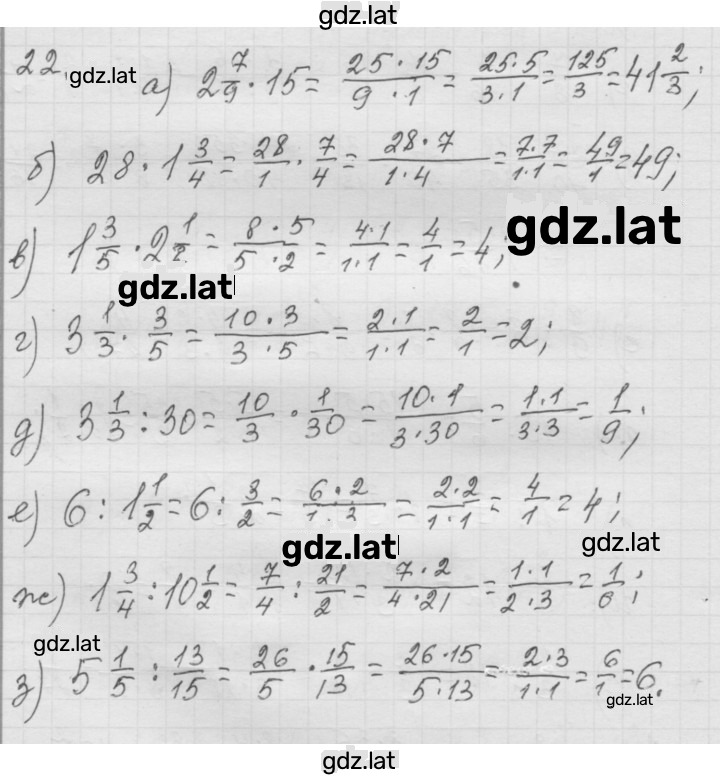 gdz.lat
22. gdz.lat а) 2 7/9 · 15 = 25 · 15 / 9 · 1 = 25 · 5 / 3 · 1 = 125/3 = 41 2/3;
б) 28 · 1 3/4 = 28/1 · 7/4 = 28 · 7 / 1 · 4 = 7 · 7 / 1 · 1 = 49/1 = 49;
gdz.lat
в) 1 3/5 · 2 1/2 = 8 · 5 / 5 · 2 = 4 · 1 / 1 · 1 = 4/1 = 4;
gdz.lat
г) 3 1/3 · 3/5 = 10 · 3 / 3 · 5 = 2 · 1 / 1 · 1 = 2/1 = 2;
д) 3 1/3 : 30 = 10/3 · 1/30 = 10 · 1 / 3 · 30 = 1 · 1 / 3 · 3 = 1/9;
е) 6 : 1 1/2 = 6 : 3/2 = 6 · 2 / 1 · 3 = 2 · 2 / 1 · 1 = 4/1 = 4;
gdz.lat gdz.lat
ж) 1 3/4 : 10 1/2 = 7/4 : 21/2 = 7 · 2 / 4 · 21 = 1 · 1 / 2 · 3 = 1/6;
gdz.lat
з) 5 1/5 : 13/15 = 26/5 · 15/13 = 26 · 15 / 5 · 13 = 2 · 3 / 1 · 1 = 6/1 = 6.
gdz.lat
gdz.lat